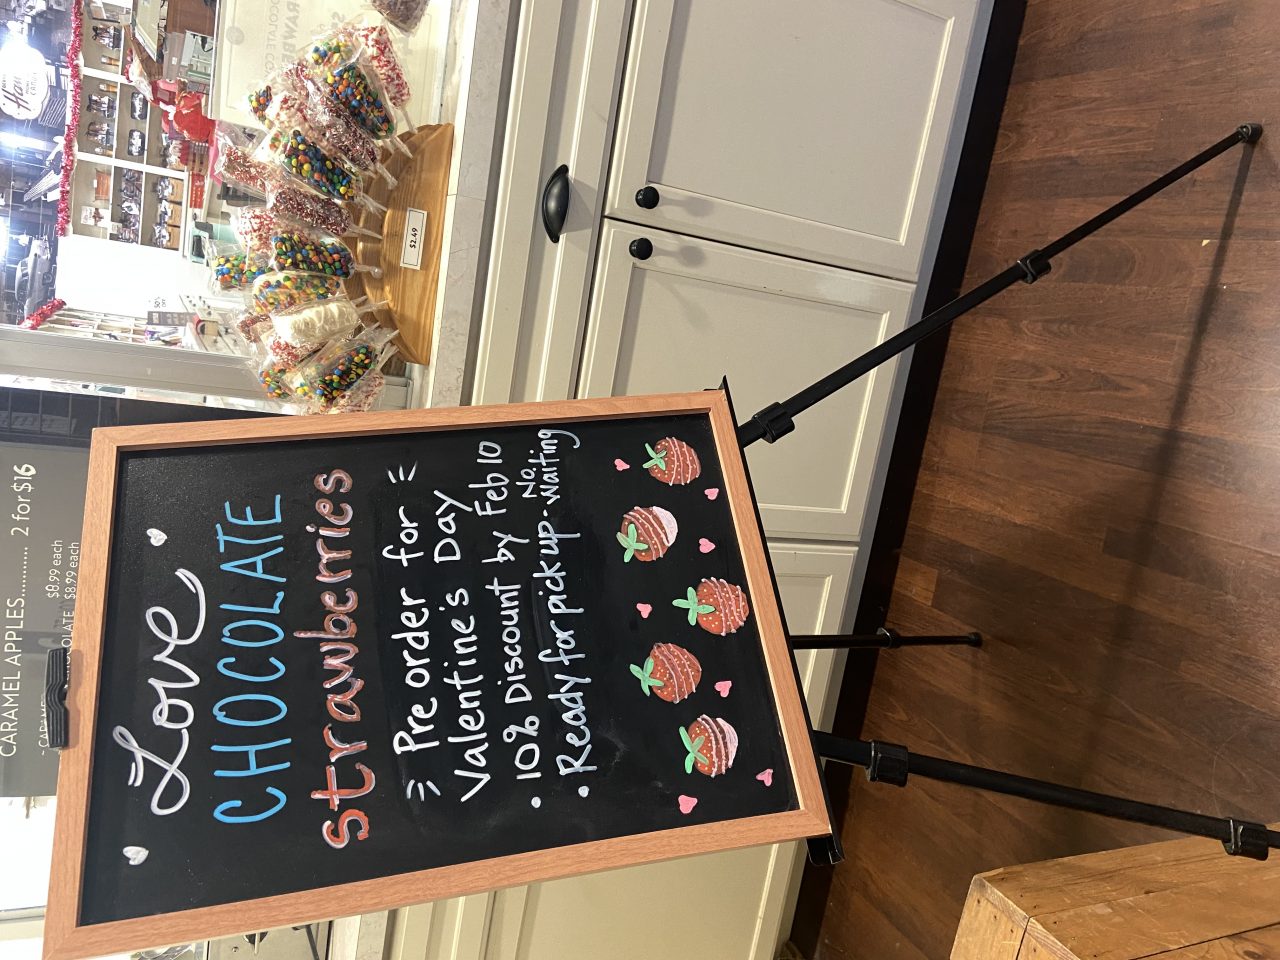 Love
CHOCOLATE
strawberries
Pre order for
Valentine's Day
• 10% Discount by Feb 10
• Ready for pick up - No. Waiting
CARAMEL APPLES............ 2 for $16
$8.99 each
$8.99 each
$2.49